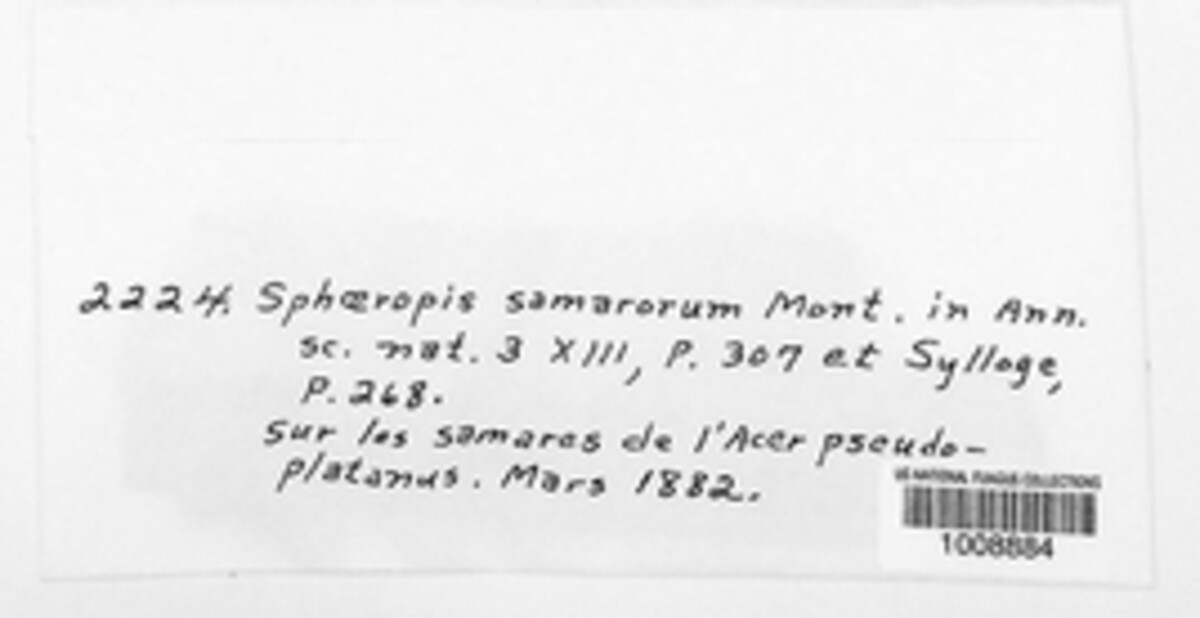 2224. Sphæropis samarorum Mont. in Ann.
sc. nat. 3 XIII, P. 307 et Sylloge,
P. 268.
Sur les samares de l'Acer pseudo-
platanus. Mars 1882.
US NATIONAL FUNGUS COLLECTIONS
1008884